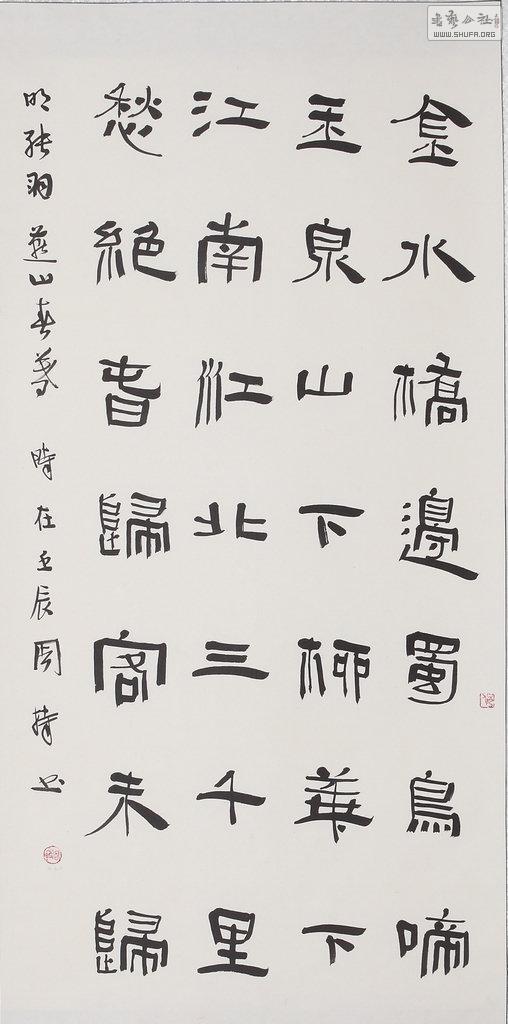 金水橋邊蜀鳥啼
玉泉山下柳華下
江南江北三千里
愁絕旾歸客未歸
明張羽燕山春暮 時在壬辰周書
书艺公社
WWW.SHUFA.ORG